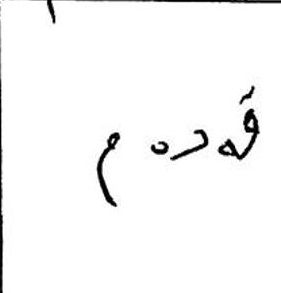 قەدەم